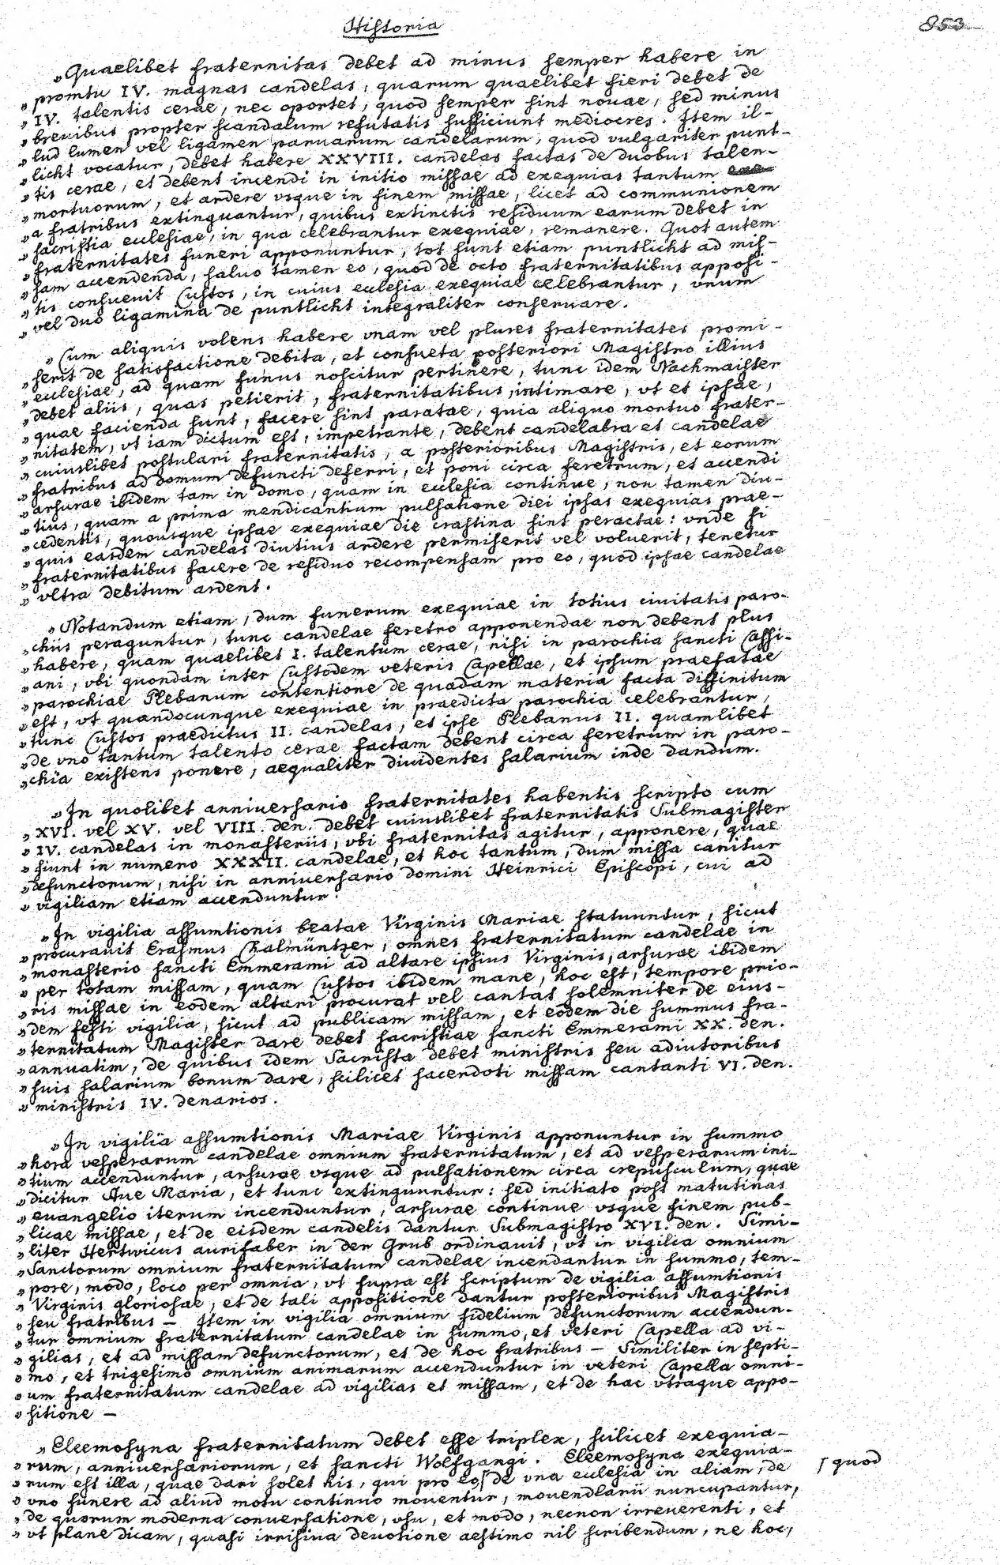 Historia
853
„Quaelibet fraternitas debet ad minus semper habere in
„promtu IV. magnas candelas, quarum quaelibet fieri debet de
„IV. talentis cerae, nec oportet, quod semper sint nouae, sed minus
„breuibus propter scandalum refutatis sufficiunt mediocres. Item il-
„lud lumen vel ligamen paruarum candelarum, quod vulgariter punt-
„licht vocatur, debet habere XXVIII. candelas factas de duobus talen-
„tis cerae, et debent incendi in initio missae ad exequias tantum
„mortuorum, et ardere vsque in finem missae, licet ad communionem
„a fratribus extinguantur, quibus extinctis residuum earum debet in
„sacristia ecclesiae, in qua celebrantur exequiae, remanere. Quot autem
„fraternitates funeri apponuntur, tot sunt etiam puntlicht ad mis-
„sam accendenda, saluo tamen eo, quod de octo fraternitatibus apposi-
„tis consueuit Custos, in cuius ecclesia exequiae celebrantur, vnum
„vel duo ligamina de puntlicht integraliter conseruare.
„Cum aliquis volens habere vnam vel plures fraternitates promi-
„serit de satisfactione debita, et consueta posteriori Magistro illius
„ecclesiae, ad quam funus noscitur pertinere, tunc idem Nachmaister
„debet aliis, quas petierit, fraternitatibus, intimare, vt et ipsae,
„quae facienda sunt, facere sint paratae, quia aliquo mortuo frater-
„nitatem, vt iam dictum est, impetrante, debent candelabra et candelae
„cuiuslibet postulari fraternitatis, a posterioribus Magistris, et eorum
„fratribus ad domum defuncti deferri, et poni circa feretrum, et accendi
„arsurae ibidem tam in domo, quam in ecclesia continue, non tamen diu-
„tius, quam a prima mendicantium pulsatione diei ipsas exequias prae-
„cedentis, quousque ipsae exequiae die crastina sint peractae: vnde si
„quis easdem candelas diutius ardere permiserit vel voluerit, tenetur
„fraternitatibus facere de residuo recompensam pro eo, quod ipsae candelae
„vltra debitum ardent.
„Notandum etiam, dum funerum exequiae in totius ciuitatis paro-
„chiis peraguntur, tunc candelae feretro apponendae non debent plus
„habere, quam quaelibet I. talentum cerae, nisi in parochia sancti Cassi-
„ani, vbi quondam inter Custodem veteris Capellae, et ipsum praefatae
„parochiae Plebanum contentione de quadam materia facta diffinitum
„est, vt quandocunque exequiae in praedicta parochia celebrantur,
„tunc Custos praedictus II. candelas, et ipse Plebanus II. quamlibet
„de vno tantum talento cerae factam debent circa feretrum in paro-
„chia existens ponere, aequaliter diuidentes salarium inde dandum.
„In quolibet anniuersario fraternitates habentis scripto cum
„XVI. vel XV. vel VIII. den. debet cuiuslibet fraternitatis Submagister
„IV. candelas in monasteriis, vbi fraternitas agitur, apponere, quae
„fiunt in numero XXXII. candelae, et hoc tantum, dum missa canitur
„defunctorum, nisi in anniuersario domini Heinrici Episcopi, cui ad
„vigiliam etiam accenduntur.
„In vigilia assumtionis beatae Virginis Mariae statuuntur, sicut
„procurauit Erasmus Zalmüntzer, omnes fraternitatum candelae in
„monasterio sancti Emmerami ad altare ipsius Virginis, arsurae ibidem
„per totam missam, quam Custos ibidem mane, hoc est, tempore prio-
„ris missae in eodem altari procurat vel cantat solemniter de eius-
„dem festi vigilia, sicut ad publicam missam, et eodem die summus fra-
„ternitatum Magister dare debet sacristiae sancti Emmerami XX. den.
„annuatim, de quibus idem Sacrista debet ministris seu adiutoribus
„suis salarium bonum dare, scilicet sacerdoti missam cantanti VI. den.
„ministris IV. denarios.
„In vigilia assumtionis Mariae Virginis apponuntur in summo
„hora vesperarum candelae omnium fraternitatum, et ad vesperarum ini-
„tium accenduntur, arsurae vsque ad pulsationem circa crepusculum, quae
„dicitur Aue Maria, et tunc extinguuntur: sed initiato post matutinas
„euangelio iterum incenduntur, arsurae continue vsque finem pub-
„licae missae, et de eisdem candelis dantur Submagistro XVI. den. Simi-
„liter Hertwicus aurifaber in der Grub ordinauit, vt in vigilia omnium
„Sanctorum omnium fraternitatum candelae incendantur in summo, tem-
„pore, modo, loco per omnia, vt supra est scriptum de vigilia assumtionis
„Virginis gloriosae, et de tali appositione dantur posterioribus Magistris
„seu fratribus — Item in vigilia omnium fidelium defunctorum accendun-
„tur omnium fraternitatum candelae in summo, et veteri Capella ad vi-
„gilias, et ad missam defunctorum, et de hoc fratribus — Similiter in septi-
„mo, et trigesimo omnium animarum accenduntur in veteri Capella omni-
„um fraternitatum candelae ad vigilias et missam, et de hac vtraque appo-
„sitione —
„Eleemosyna fraternitatum debet esse triplex, scilicet exequia-
„rum, anniuersariorum, et sancti Wolfgangi. Eleemosyna exequia-
„rum est illa, quae dari solet his, qui pro eo⌈de vna ecclesia in aliam, de
⌈quod
„vno funere ad aliud motu continuo mouentur, mouendlarii nuncupantur,
„de quorum moderna conuersatione, vsu, et modo, necnon irreuerenti, et
„vt plane dicam, quasi irrisiua deuotione aestimo nil scribendum, ne hoc,